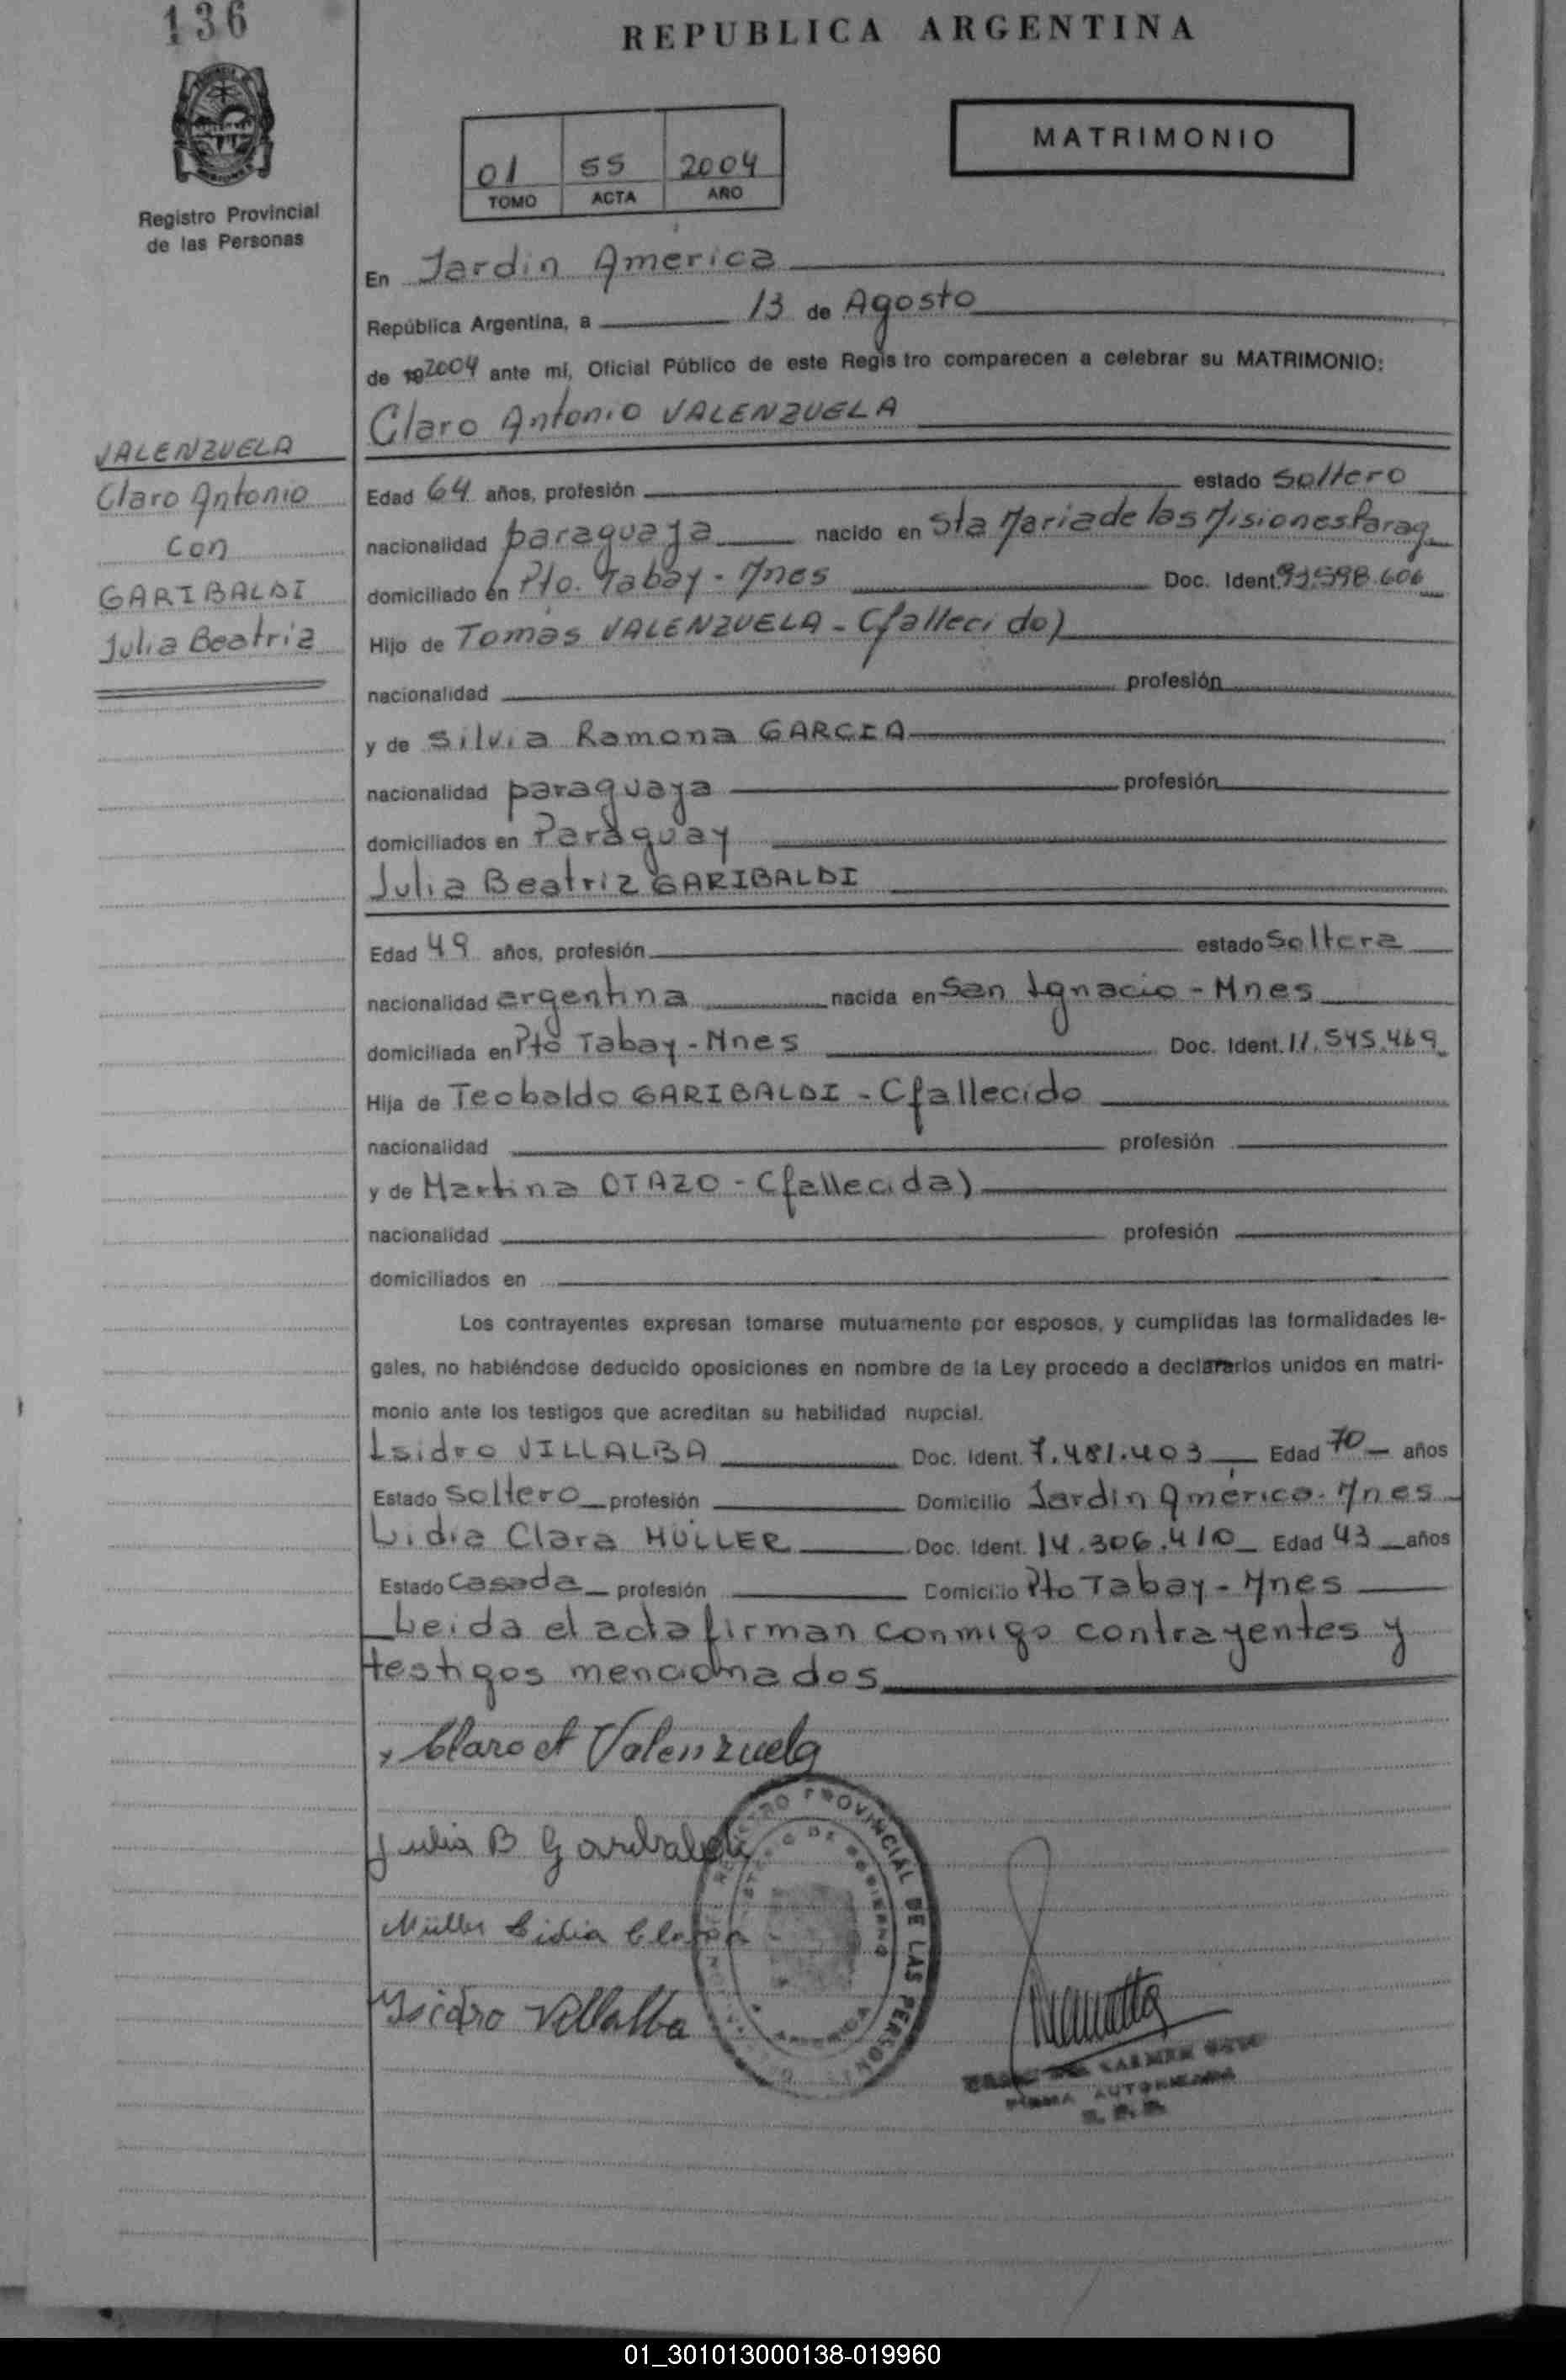 136
REPUBLICA ARGENTINA
MATRIMONIO
01 55 2004
TOMO ACTA AÑO
Registro Provincial
de las Personas
En Jardin America
República Argentina, a 13 de Agosto
de 192004 ante mí, Oficial Público de este Registro comparecen a celebrar su MATRIMONIO:
Claro Antonio VALENZUELA
VALENZUELA
Claro Antonio
con
GARIBALDI
Julia Beatriz
Edad 64 años, profesión estado soltero
nacionalidad paraguaya nacido en Sta Maria de las Misiones Parag
domiciliado en Pto. Tabay - Mnes Doc. Ident. 92.598.606
Hijo de Tomás VALENZUELA - (fallecido)
nacionalidad profesión
y de Silvia Ramona GARCIA
nacionalidad paraguaya profesión
domiciliados en Paraguay
Julia Beatriz GARIBALDI
Edad 49 años, profesión estado soltera
nacionalidad argentina nacida en San Ignacio - Mnes
domiciliada en Pto Tabay - Mnes Doc. Ident. 11.545.469
Hija de Teobaldo GARIBALDI - (fallecido
nacionalidad profesión
y de Martina OTAZO - (fallecida)
nacionalidad profesión
domiciliados en
Los contrayentes expresan tomarse mutuamente por esposos, y cumplidas las formalidades le-
gales, no habiéndose deducido oposiciones en nombre de la Ley procedo a declararlos unidos en matri-
monio ante los testigos que acreditan su habilidad nupcial.
Isidro VILLALBA Doc. Ident. 7.481.403 Edad 70 años
Estado soltero profesión Domicilio Jardin América - Mnes
Lidia Clara MÜLLER Doc. Ident. 14.306.410 Edad 43 años
Estado casada profesión Domicilio Pto Tabay - Mnes
Leida el acta firman conmigo contrayentes y
testigos mencionados
Claro A Valenzuela
Julia B Garibaldi
Müller Lidia Clara
Isidro Villalba
REGISTRO PROVINCIAL DE LAS PERSONAS
DE GOBIERNO
CARMEN
FIRMA AUTORIZADA
01_301013000138-019960